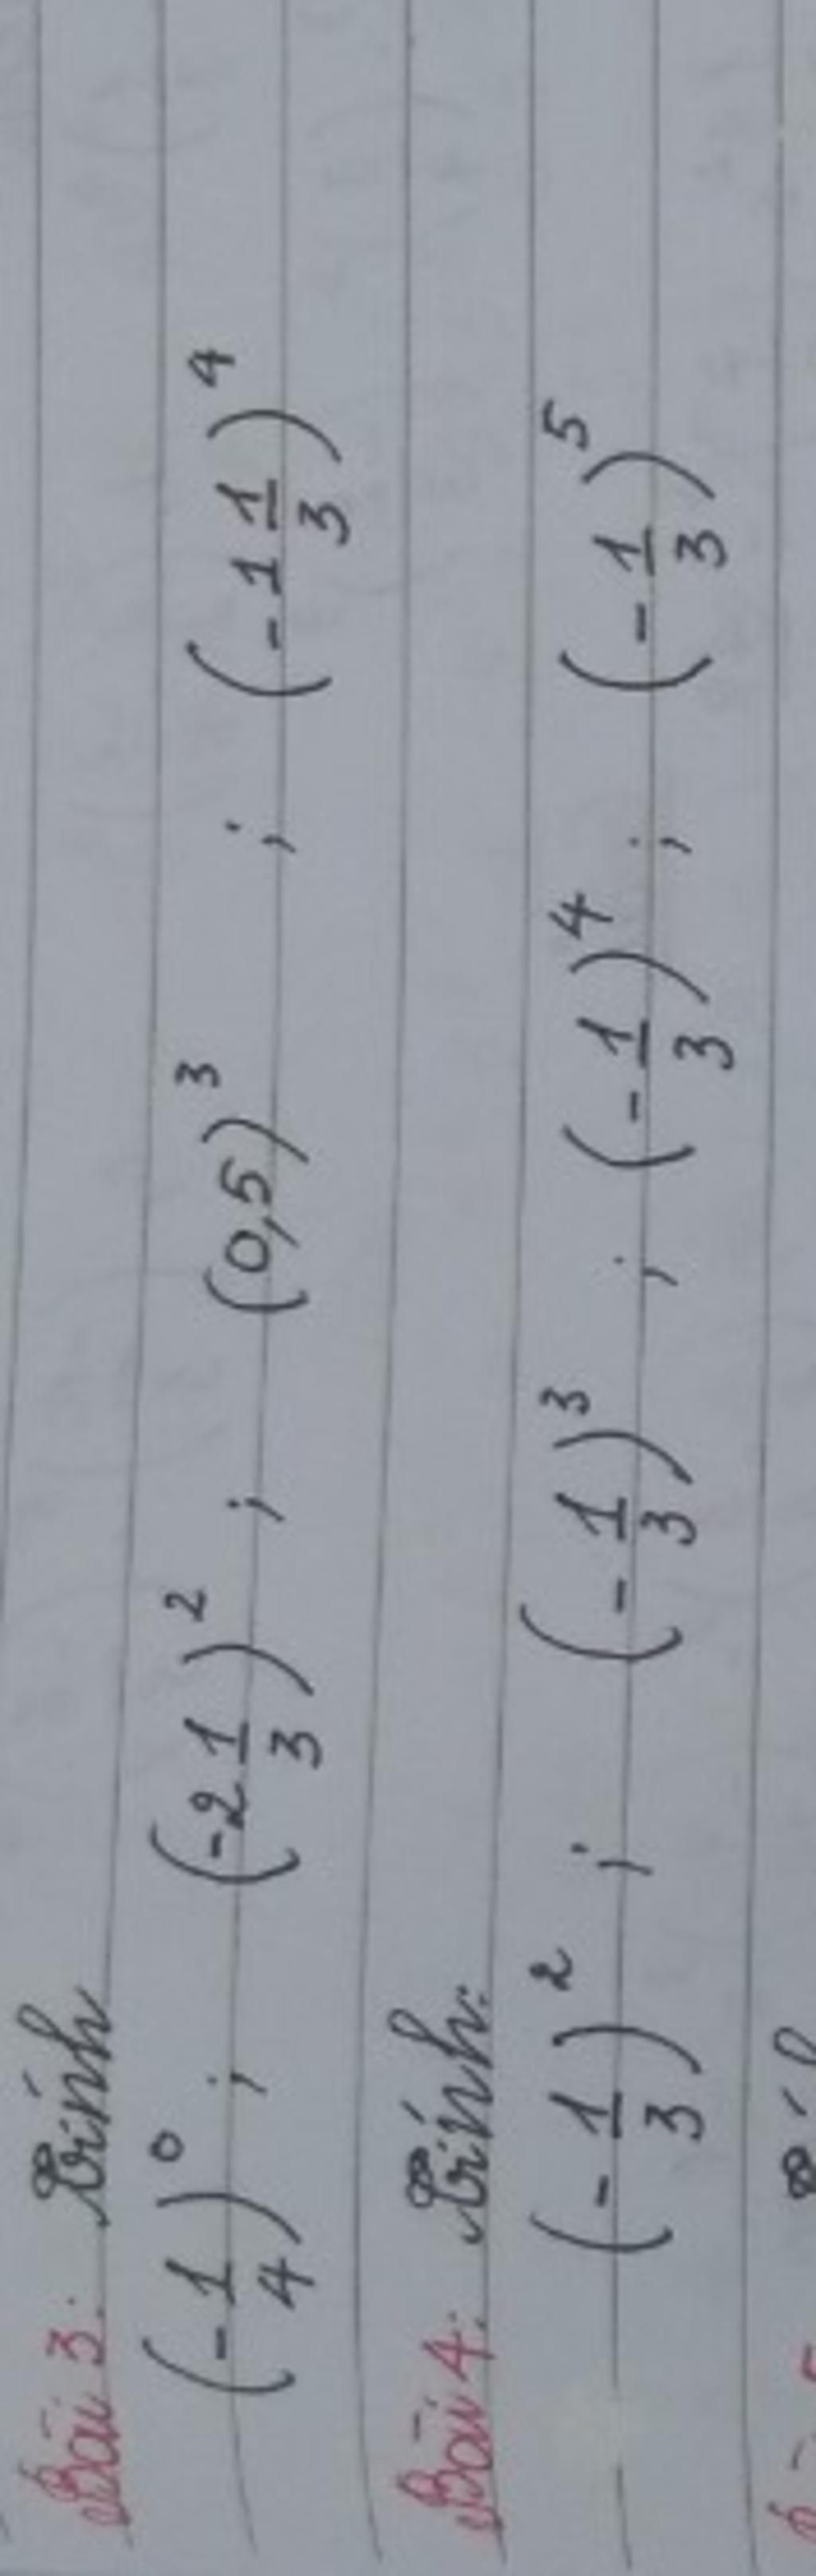 Bài 3: Tính
(-1/4)^0 ; (-2 1/3)^2 ; (0,5)^3 ; (-1 1/3)^4
Bài 4: Tính:
(-1/3)^2 ; (-1/3)^3 ; (-1/3)^4 ; (-1/3)^5